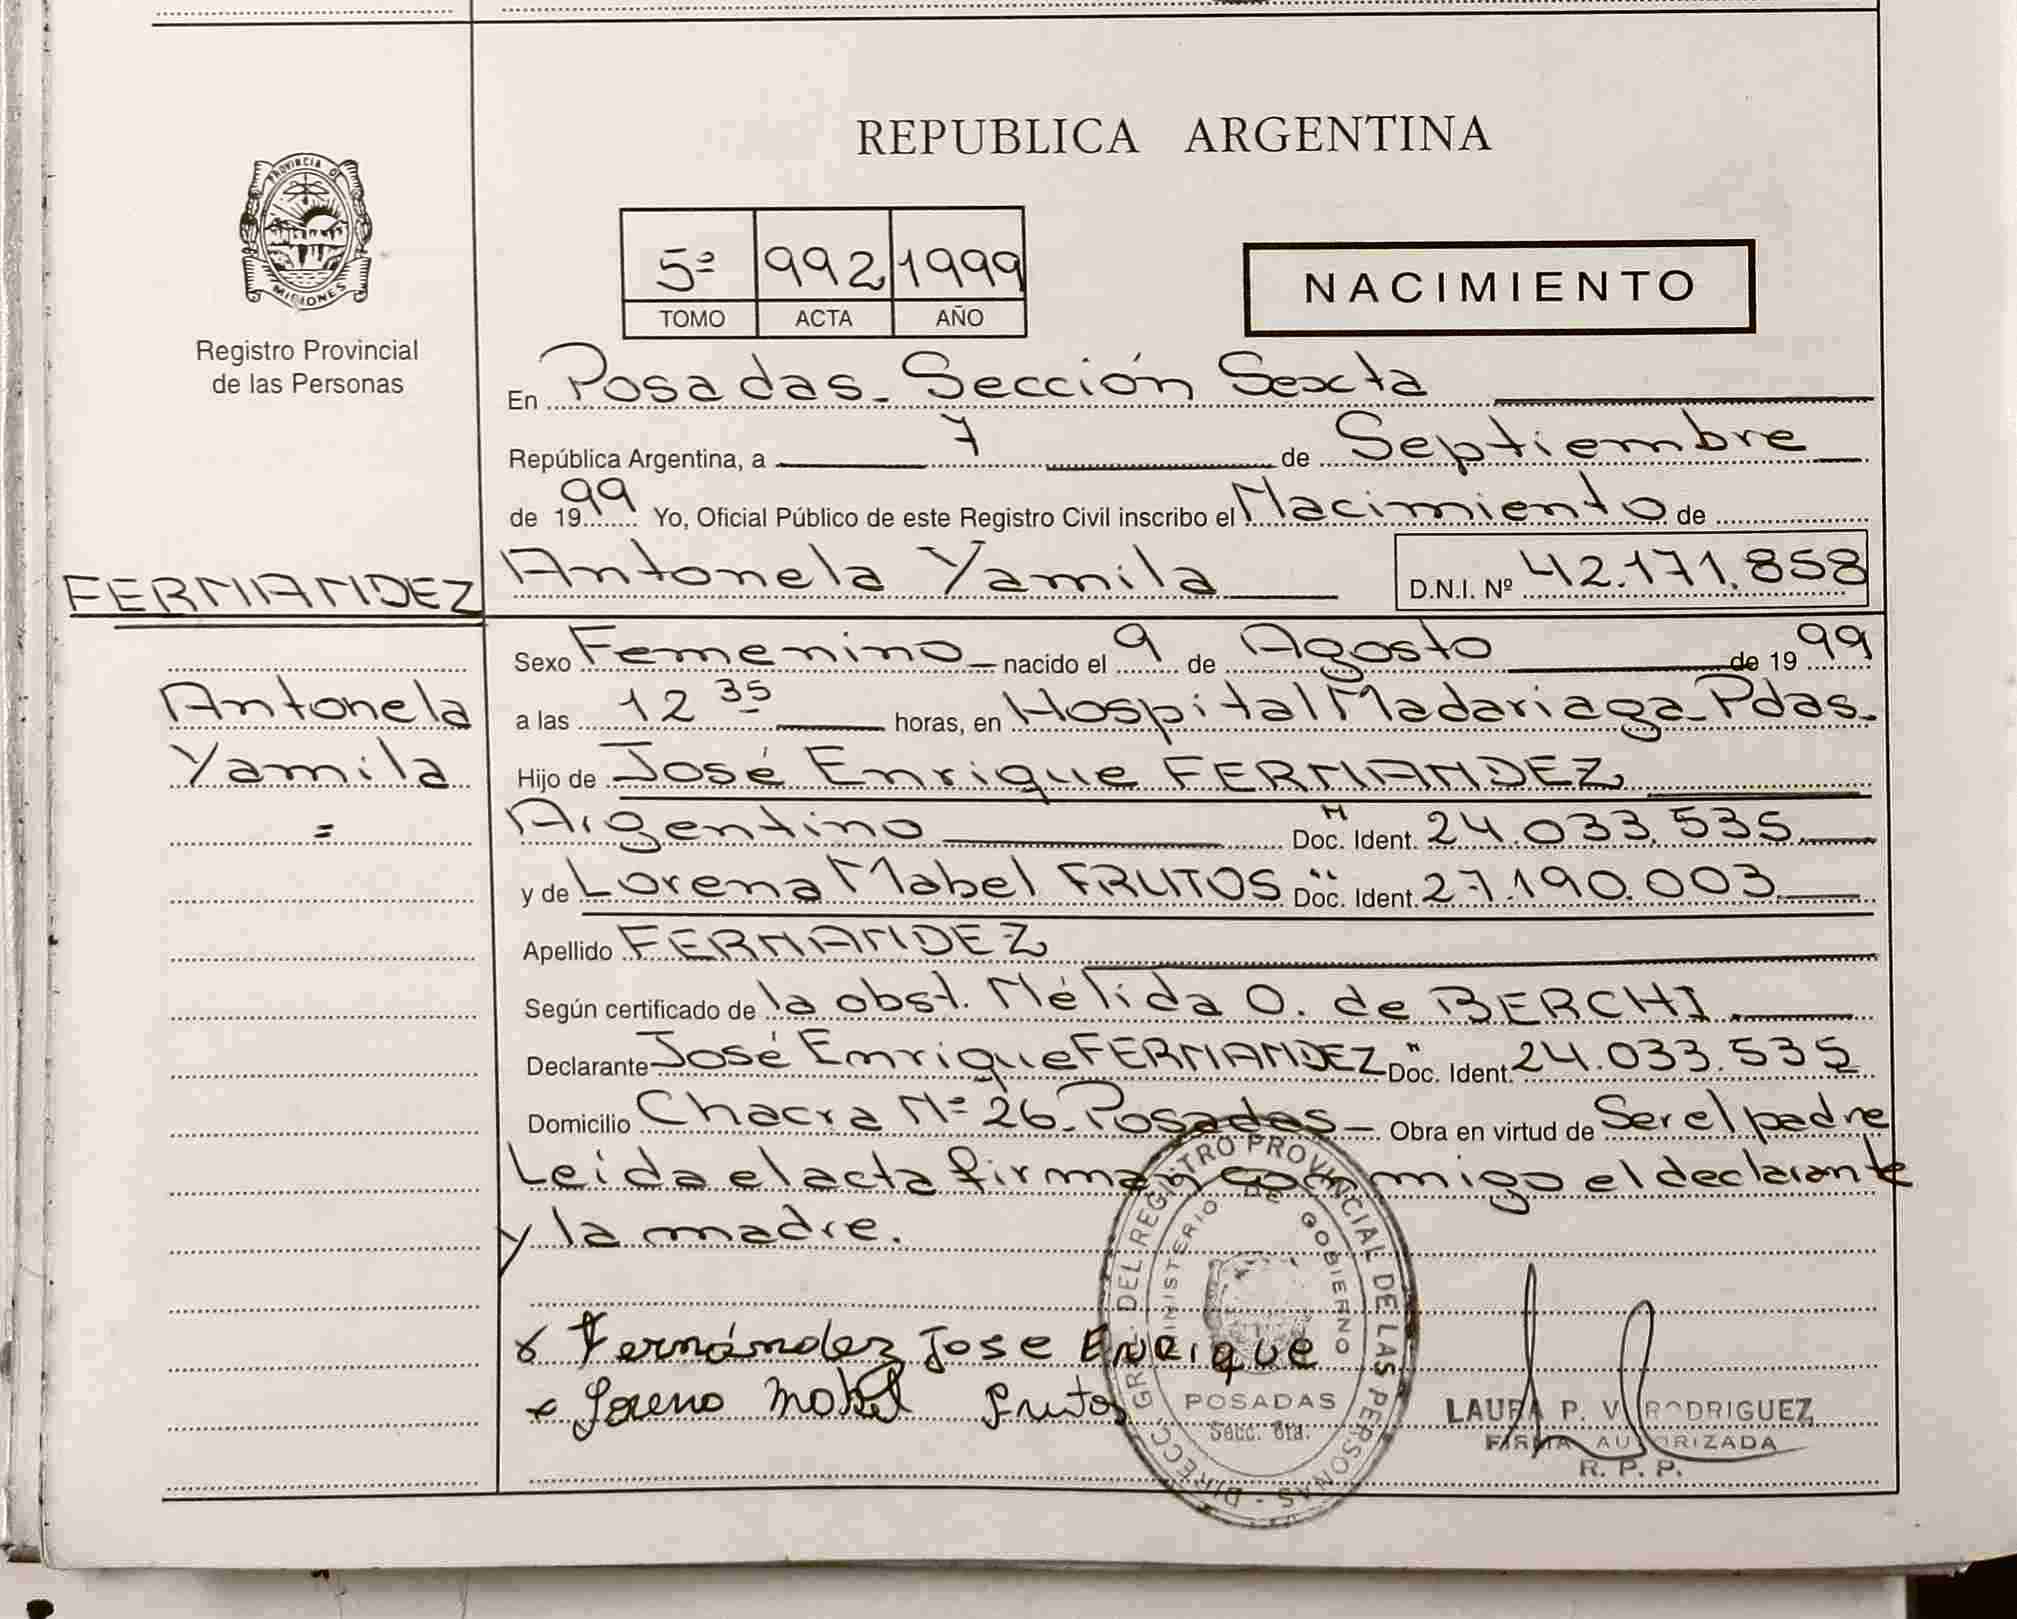 REPUBLICA ARGENTINA
PROVINCIA DE MISIONES
Registro Provincial
de las Personas
5º 992 1999
TOMO ACTA AÑO
NACIMIENTO
En Posadas. Sección Sexta
República Argentina, a 7 de Septiembre
de 1999 Yo, Oficial Público de este Registro Civil inscribo el Nacimiento de
FERNANDEZ
Antonela Yamila D.N.I. Nº 42.171.858
Antonela
Yamila
=
Sexo Femenino nacido el 9 de Agosto de 1999
a las 12 35 horas, en Hospital Madariaga. Pdas.
Hijo de José Enrique FERNANDEZ
Argentino Doc. Ident. 24.033.535
y de Lorena Mabel FRUTOS " Doc. Ident. 27.190.003
Apellido FERNANDEZ
Según certificado de la obst. Nélida O. de BERCHI
Declarante José Enrique FERNANDEZ " Doc. Ident. 24.033.535
Domicilio Chacra Nº 26. Posadas Obra en virtud de Ser el padre
Leída el acta firman conmigo el declarante
y la madre.
Fernández Jose Enrique
Lorena Mabel Frutos
DIRECC. GRL. DEL REGISTRO PROVINCIAL DE LAS PERSONAS -
MINISTERIO DE GOBIERNO
POSADAS
Secc. 6ta.
LAURA P. V. RODRIGUEZ
FIRMA AUTORIZADA
R. P. P.